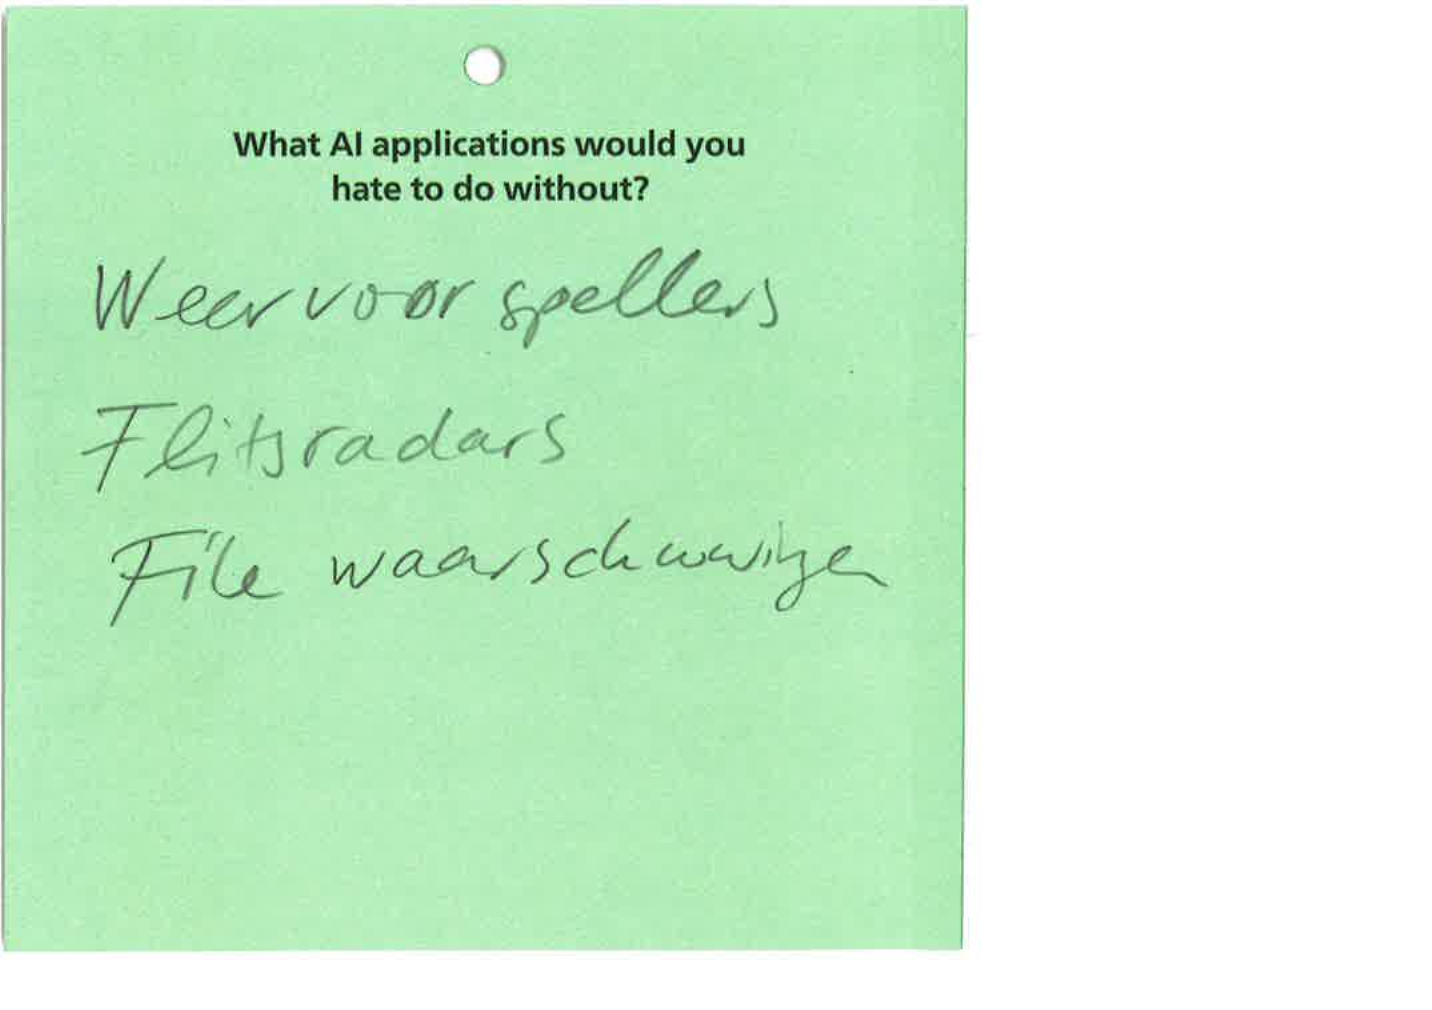 What AI applications would you
hate to do without?
Weervoorspellers
Flitsradars
File waarschuwingen